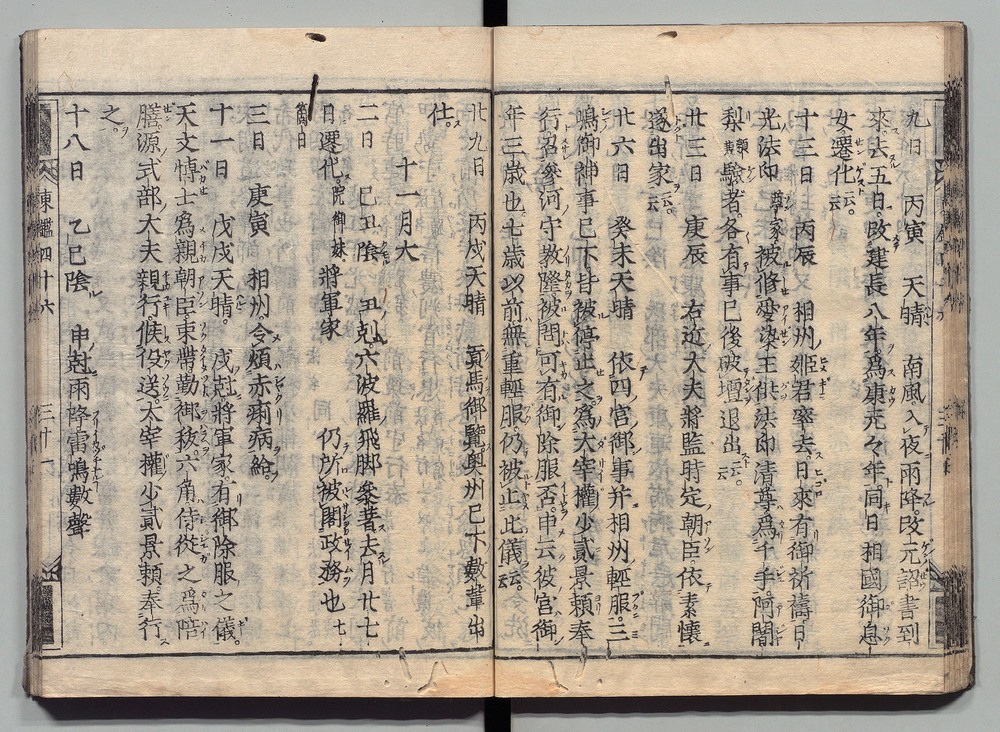 九日　丙寅　天晴　南風入夜雨降。改元詔書到
來。去五日。改建長八年爲康元々年。同日相國御息
女遷化云云。
十三日　丙辰　相州姫君寧去日來有御祈禱。日
光法印尊家被修愛染王供。法印清尊爲千手。阿闍
梨頼兼驗者。各有事。已後破壇退出云云。
廿三日　庚辰　右近大夫將監時定朝臣。依素懷
遂出家云云。
廿六日　癸未天晴　依四宮御事幷相州輕服。三
嶋御神事已下皆被停止之。爲大宰權少貳景頼奉
行。召參河守教隆被問可有御除服否。申云彼宮御
年三歳也。七歳以前無重輕服。仍被止此儀云云。
廿九日　丙戌天晴　貢馬御覽。奥州已下數輩出
仕。
十一月大
二日　己丑陰　丑尅。六波羅飛脚參著。去月廿七
日遷化院御妹將軍家　仍所被閣政務也七
箇日
三日　庚寅　相州令煩赤痢病給。
十一日　戊戌天晴。戌尅將軍家。有御除服之儀。
天文博士爲親朝臣束帶勤御祓。六角侍從之爲陪
膳。源式部大夫親行。候役送。太宰權少貳景頼奉行
之。
十八日　乙巳陰　申尅雨降雷鳴數聲
東鑑四十六
三十一